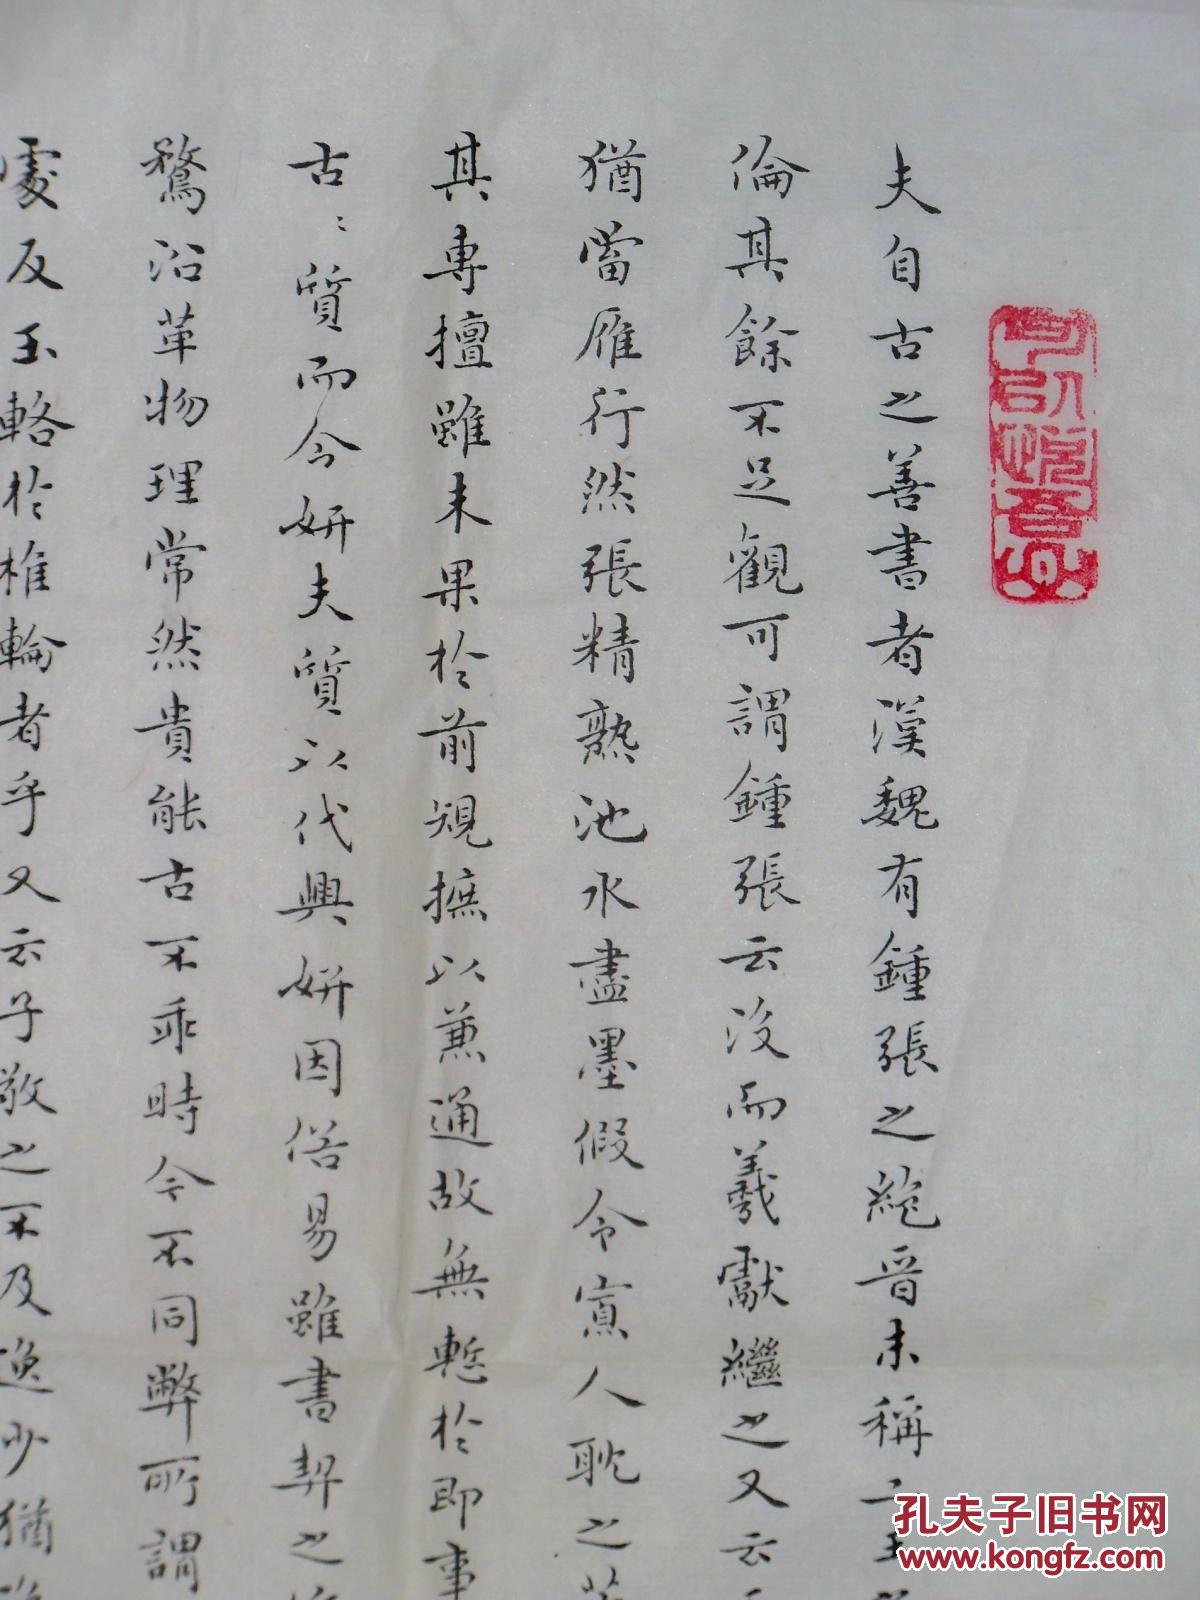 夫自古之善書者漢魏有鍾張之絕晉末稱二王
倫其餘不足觀可謂鍾張云沒而羲獻繼之又云
猶當雁行然張精熟池水盡墨假令寡人耽之
其專擅雖未果於前規摭以兼通故無慙於即事
古〻質而今妍夫質以代興妍因俗易雖書契之
騖沿革物理常然貴能古不乖時今不同弊所謂
處反玉輅於椎輪者乎又云子敬之不及逸少猶
孔夫子旧书网
www.kongfz.com